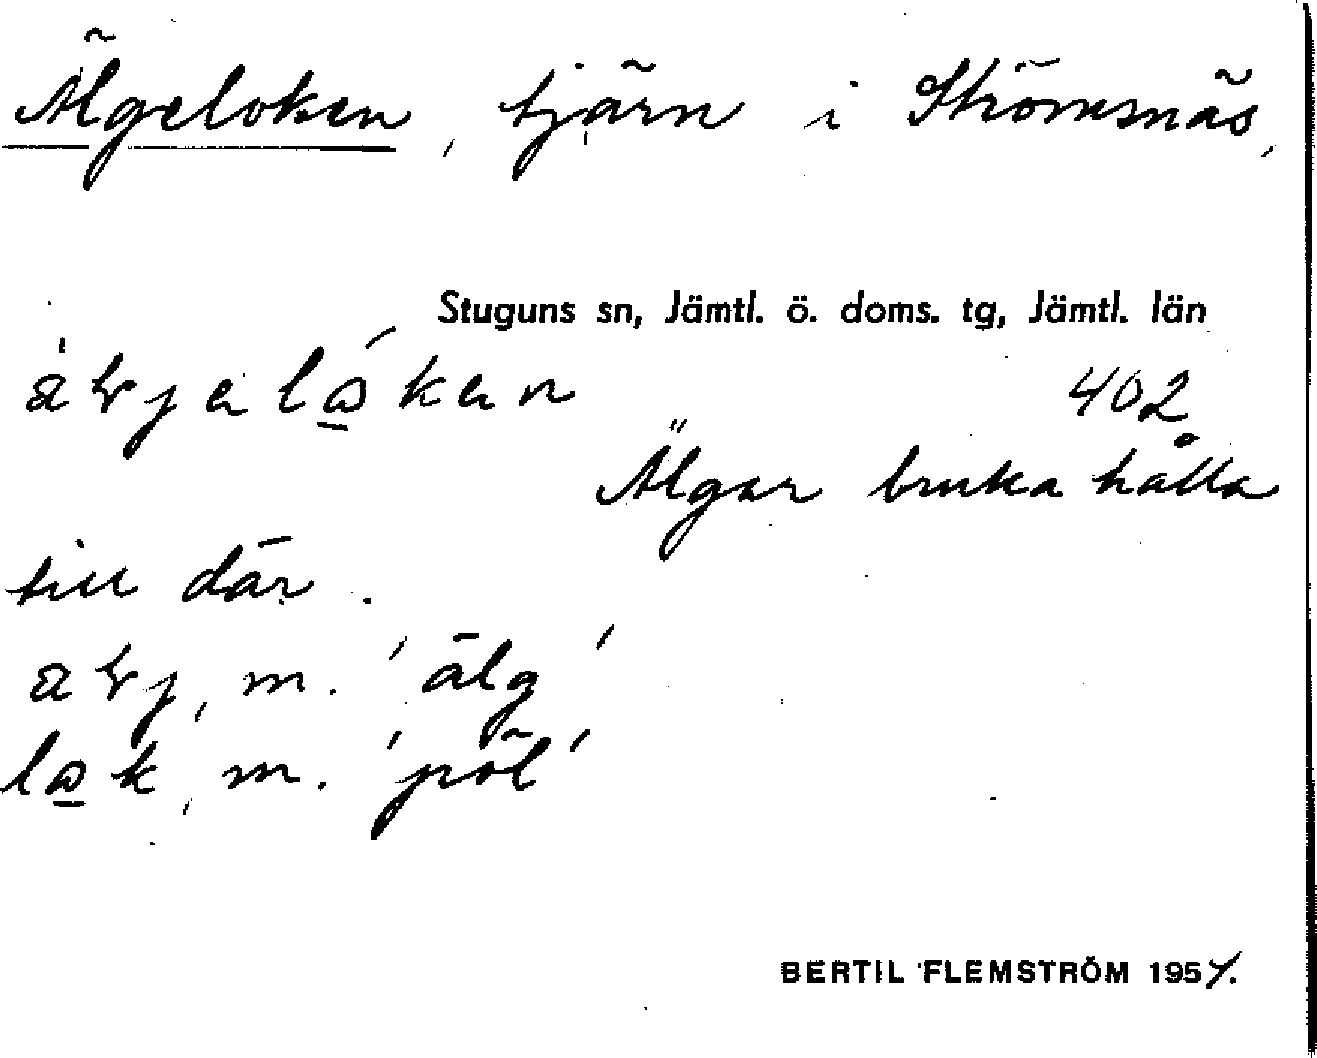 Älgeloken, tjärn i Strömsnäs,
Stuguns sn, Jämtl. ö. doms. tg, Jämtl. län
402
Älgar bruka hålla
till där.
m. 'älg'
m. 'pöl'
BERTIL FLEMSTRÖM 195